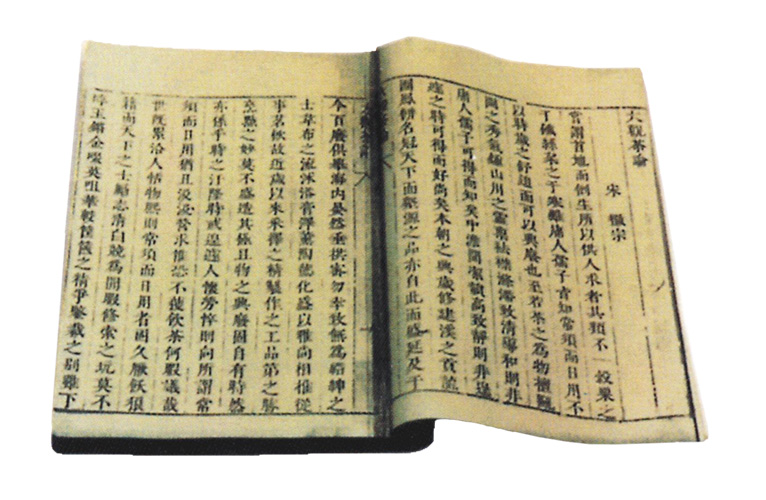 大觀茶論
宋 徽宗
嘗謂首地而倒生所以供人求者其類不一穀粟之
于饑絲枲之于寒雖庸人孺子皆知常須而日用不
以時歲之舒迫而可以興廢也至若茶之為物擅甌
閩之秀氣鍾山川之靈稟祛襟滌滯致清導和則非
庸人孺子可得而知矣中澹閒潔韻高致靜則非遑
遽之時可得而好尚矣本朝之興歲修建溪之貢龍
團鳳餅名冠天下而壑源之品亦自此而盛延及于
今百廢俱舉海內晏然垂拱密勿幸致無為縉紳之
士草布之流沐浴膏澤薰陶德化盛以雅尚相推從
事茗飲故近歲以來采擇之精製作之工品第之勝
烹點之妙莫不盛造其極且物之興廢固自有時然
亦係乎時之汙隆時或遑遽人懷勞悴則向所謂常
須而日用猶且汲汲營求惟恐不獲飲茶何暇議哉
世既累洽人恬物熙則常須而日用者固久厭飫狼
籍而天下之士勵志清白競為閒暇修索之玩莫不
碎玉鏘金啜英咀華較筐篋之精爭鑒裁之別雖下